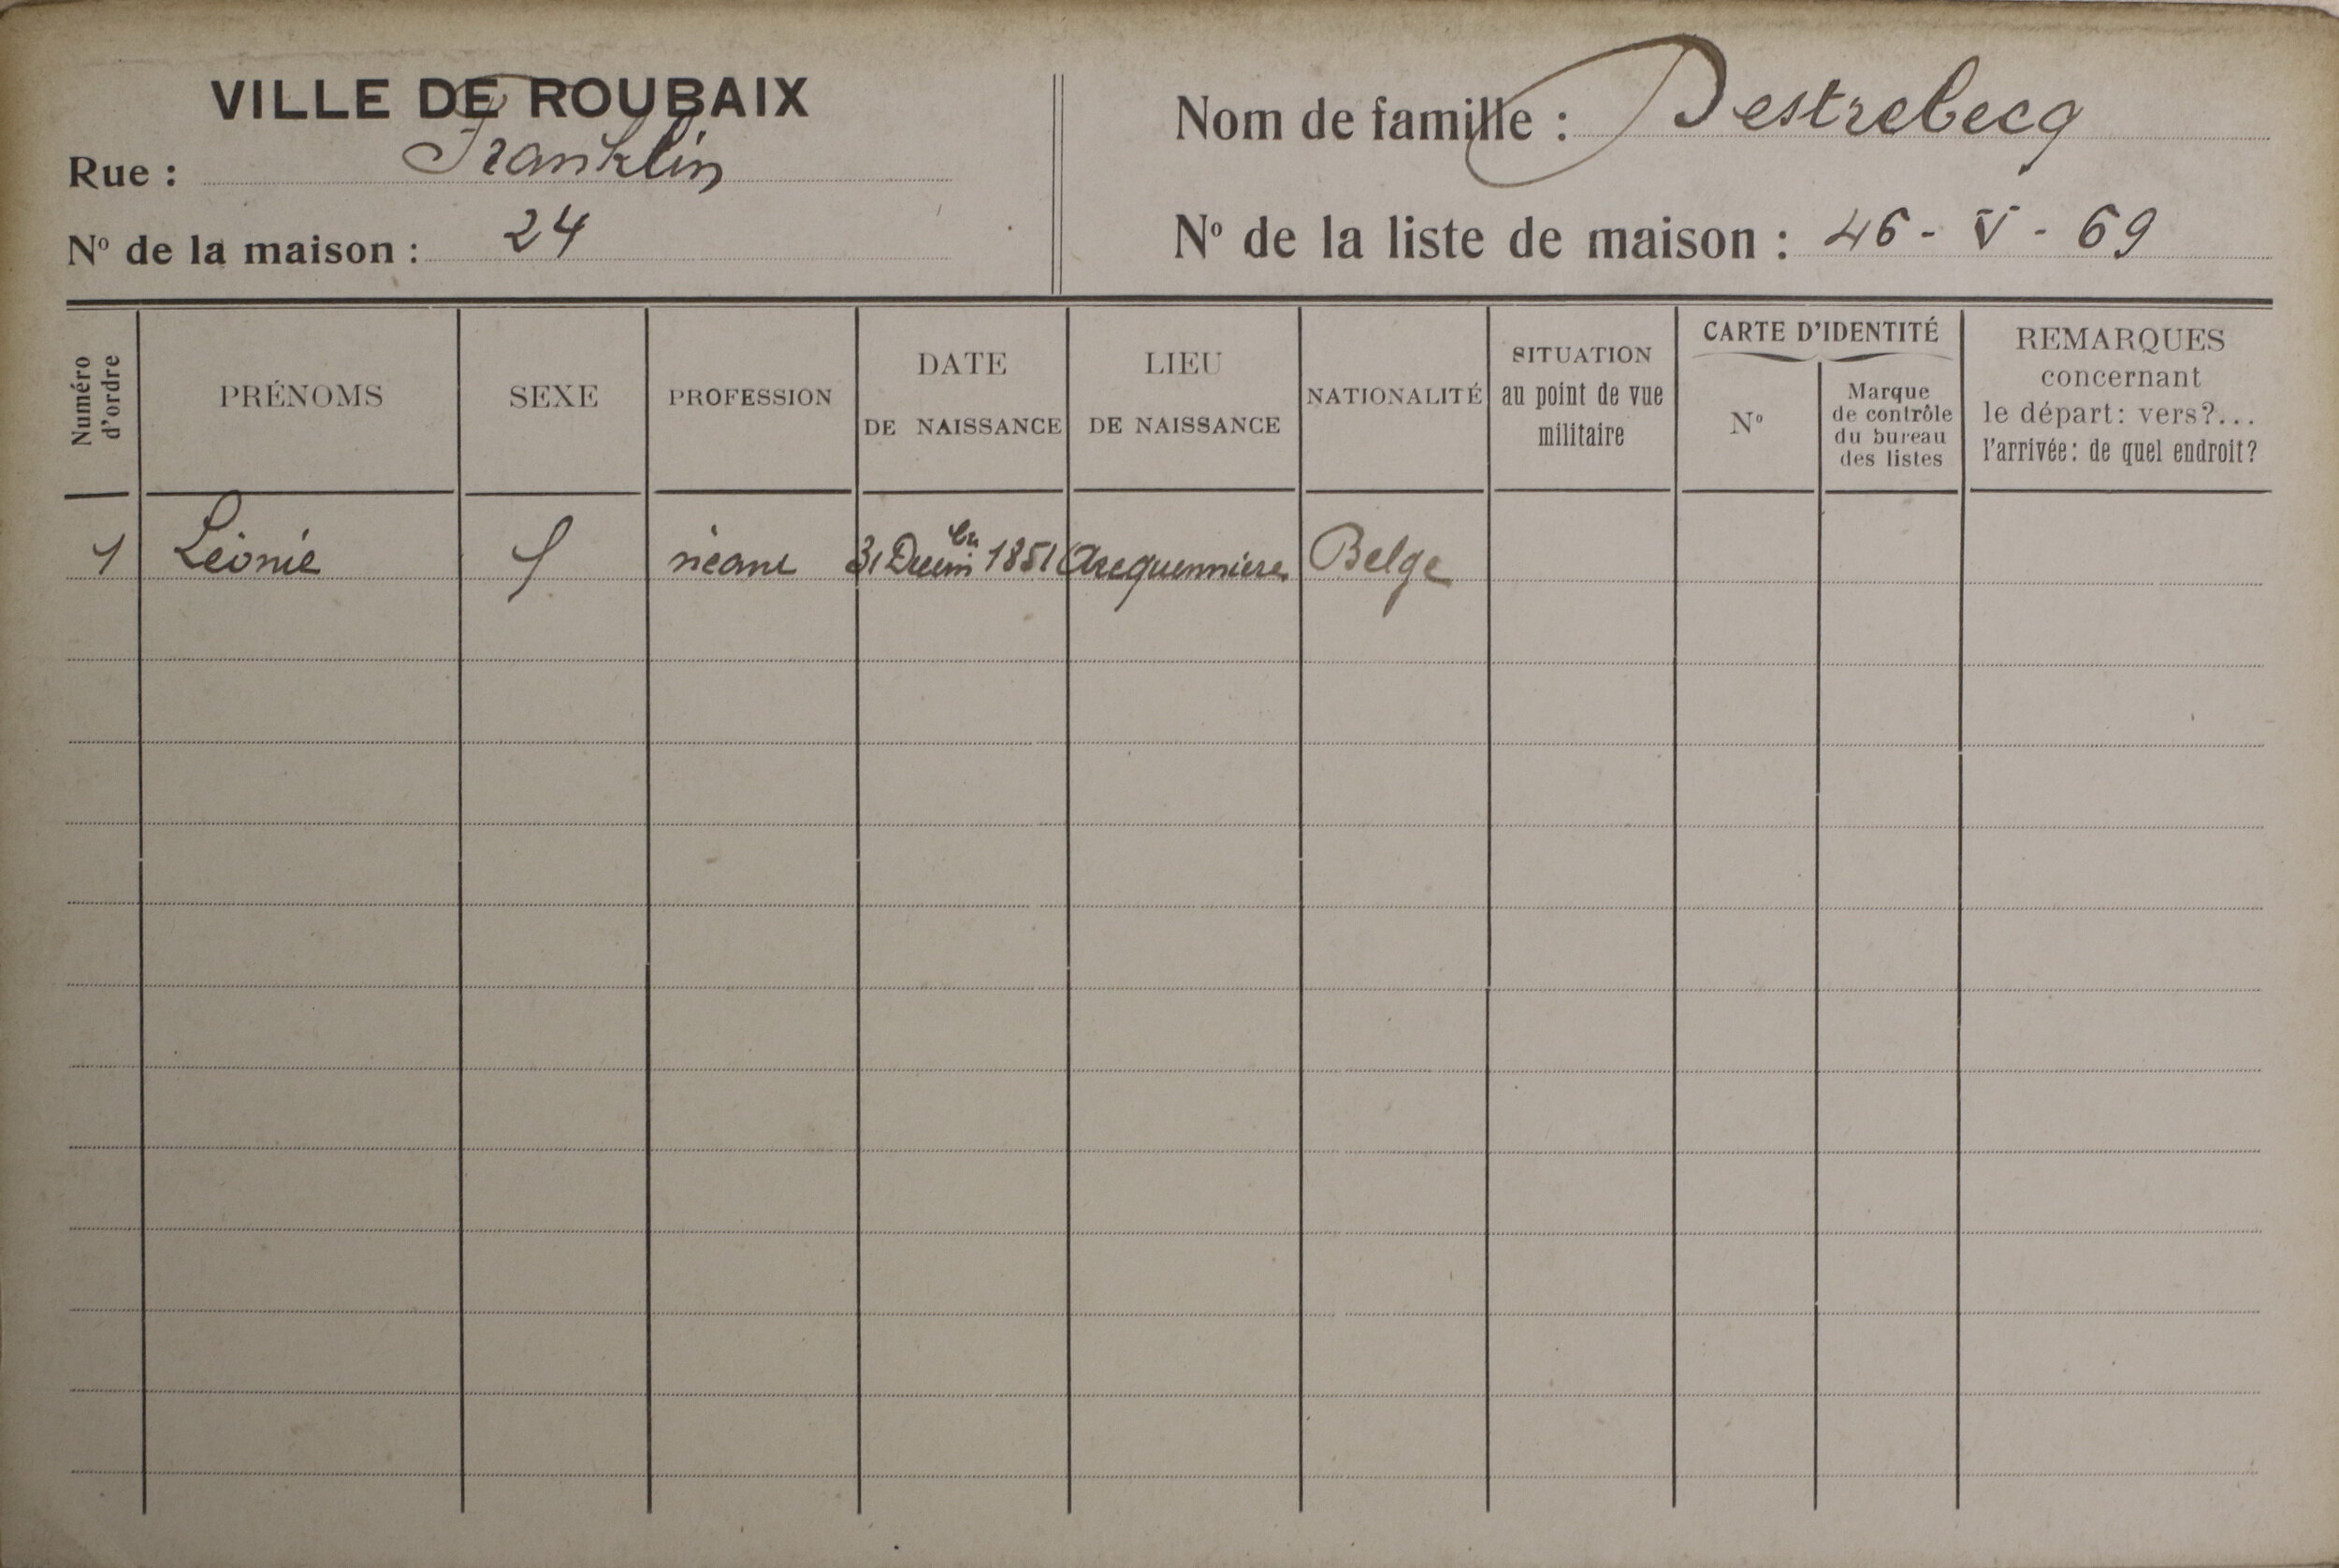 VILLE DE ROUBAIX
Rue : Franklin
Nº de la maison : 24
Nom de famille : Destrebecq
Nº de la liste de maison : 46 - V - 69
Numéro d'ordre
PRÉNOMS
SEXE
PROFESSION
DATE
DE NAISSANCE
LIEU
DE NAISSANCE
NATIONALITÉ
SITUATION
au point de vue
militaire
CARTE D'IDENTITÉ
Nº
Marque
de contrôle
du bureau
des listes
REMARQUES
concernant
le départ: vers?...
l'arrivée: de quel endroit?
1 Léonie f néant 31 1851 Arequennières Belge